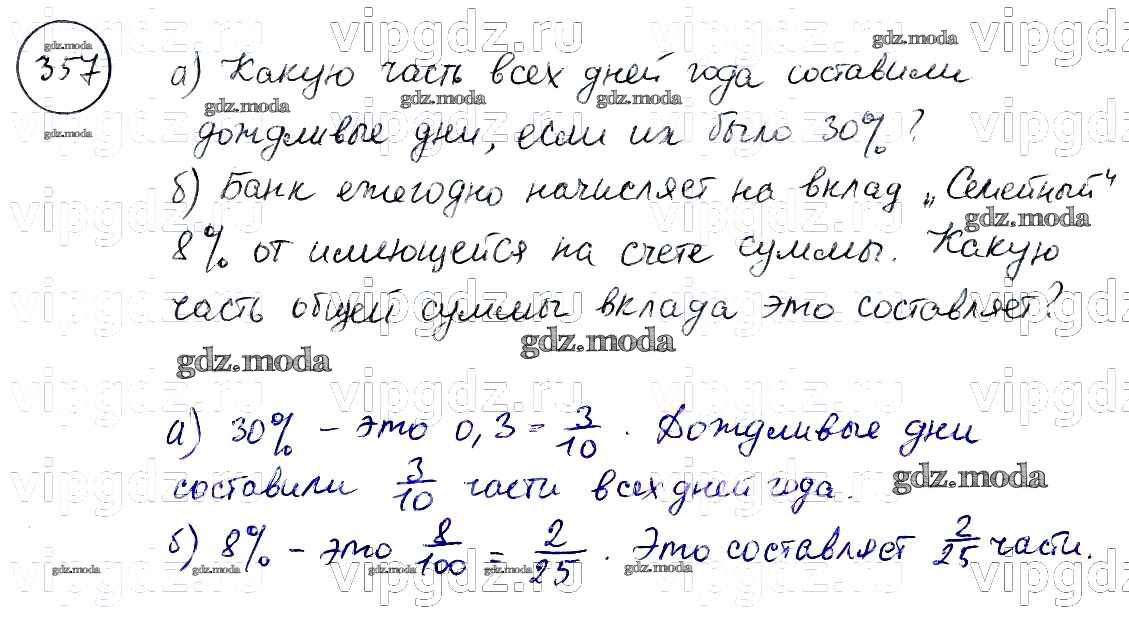 357
а) Какую часть всех дней года составили
дождливые дни, если их было 30%?
б) Банк ежегодно начисляет на вклад „Семейный“
8% от имеющейся на счете суммы. Какую
часть общей суммы вклада это составляет?
а) 30% – это 0,3 = 3/10. Дождливые дни
составили 3/10 части всех дней года.
б) 8% – это 8/100 = 2/25. Это составляет 2/25 части.
vipgdz.ru
gdz.moda